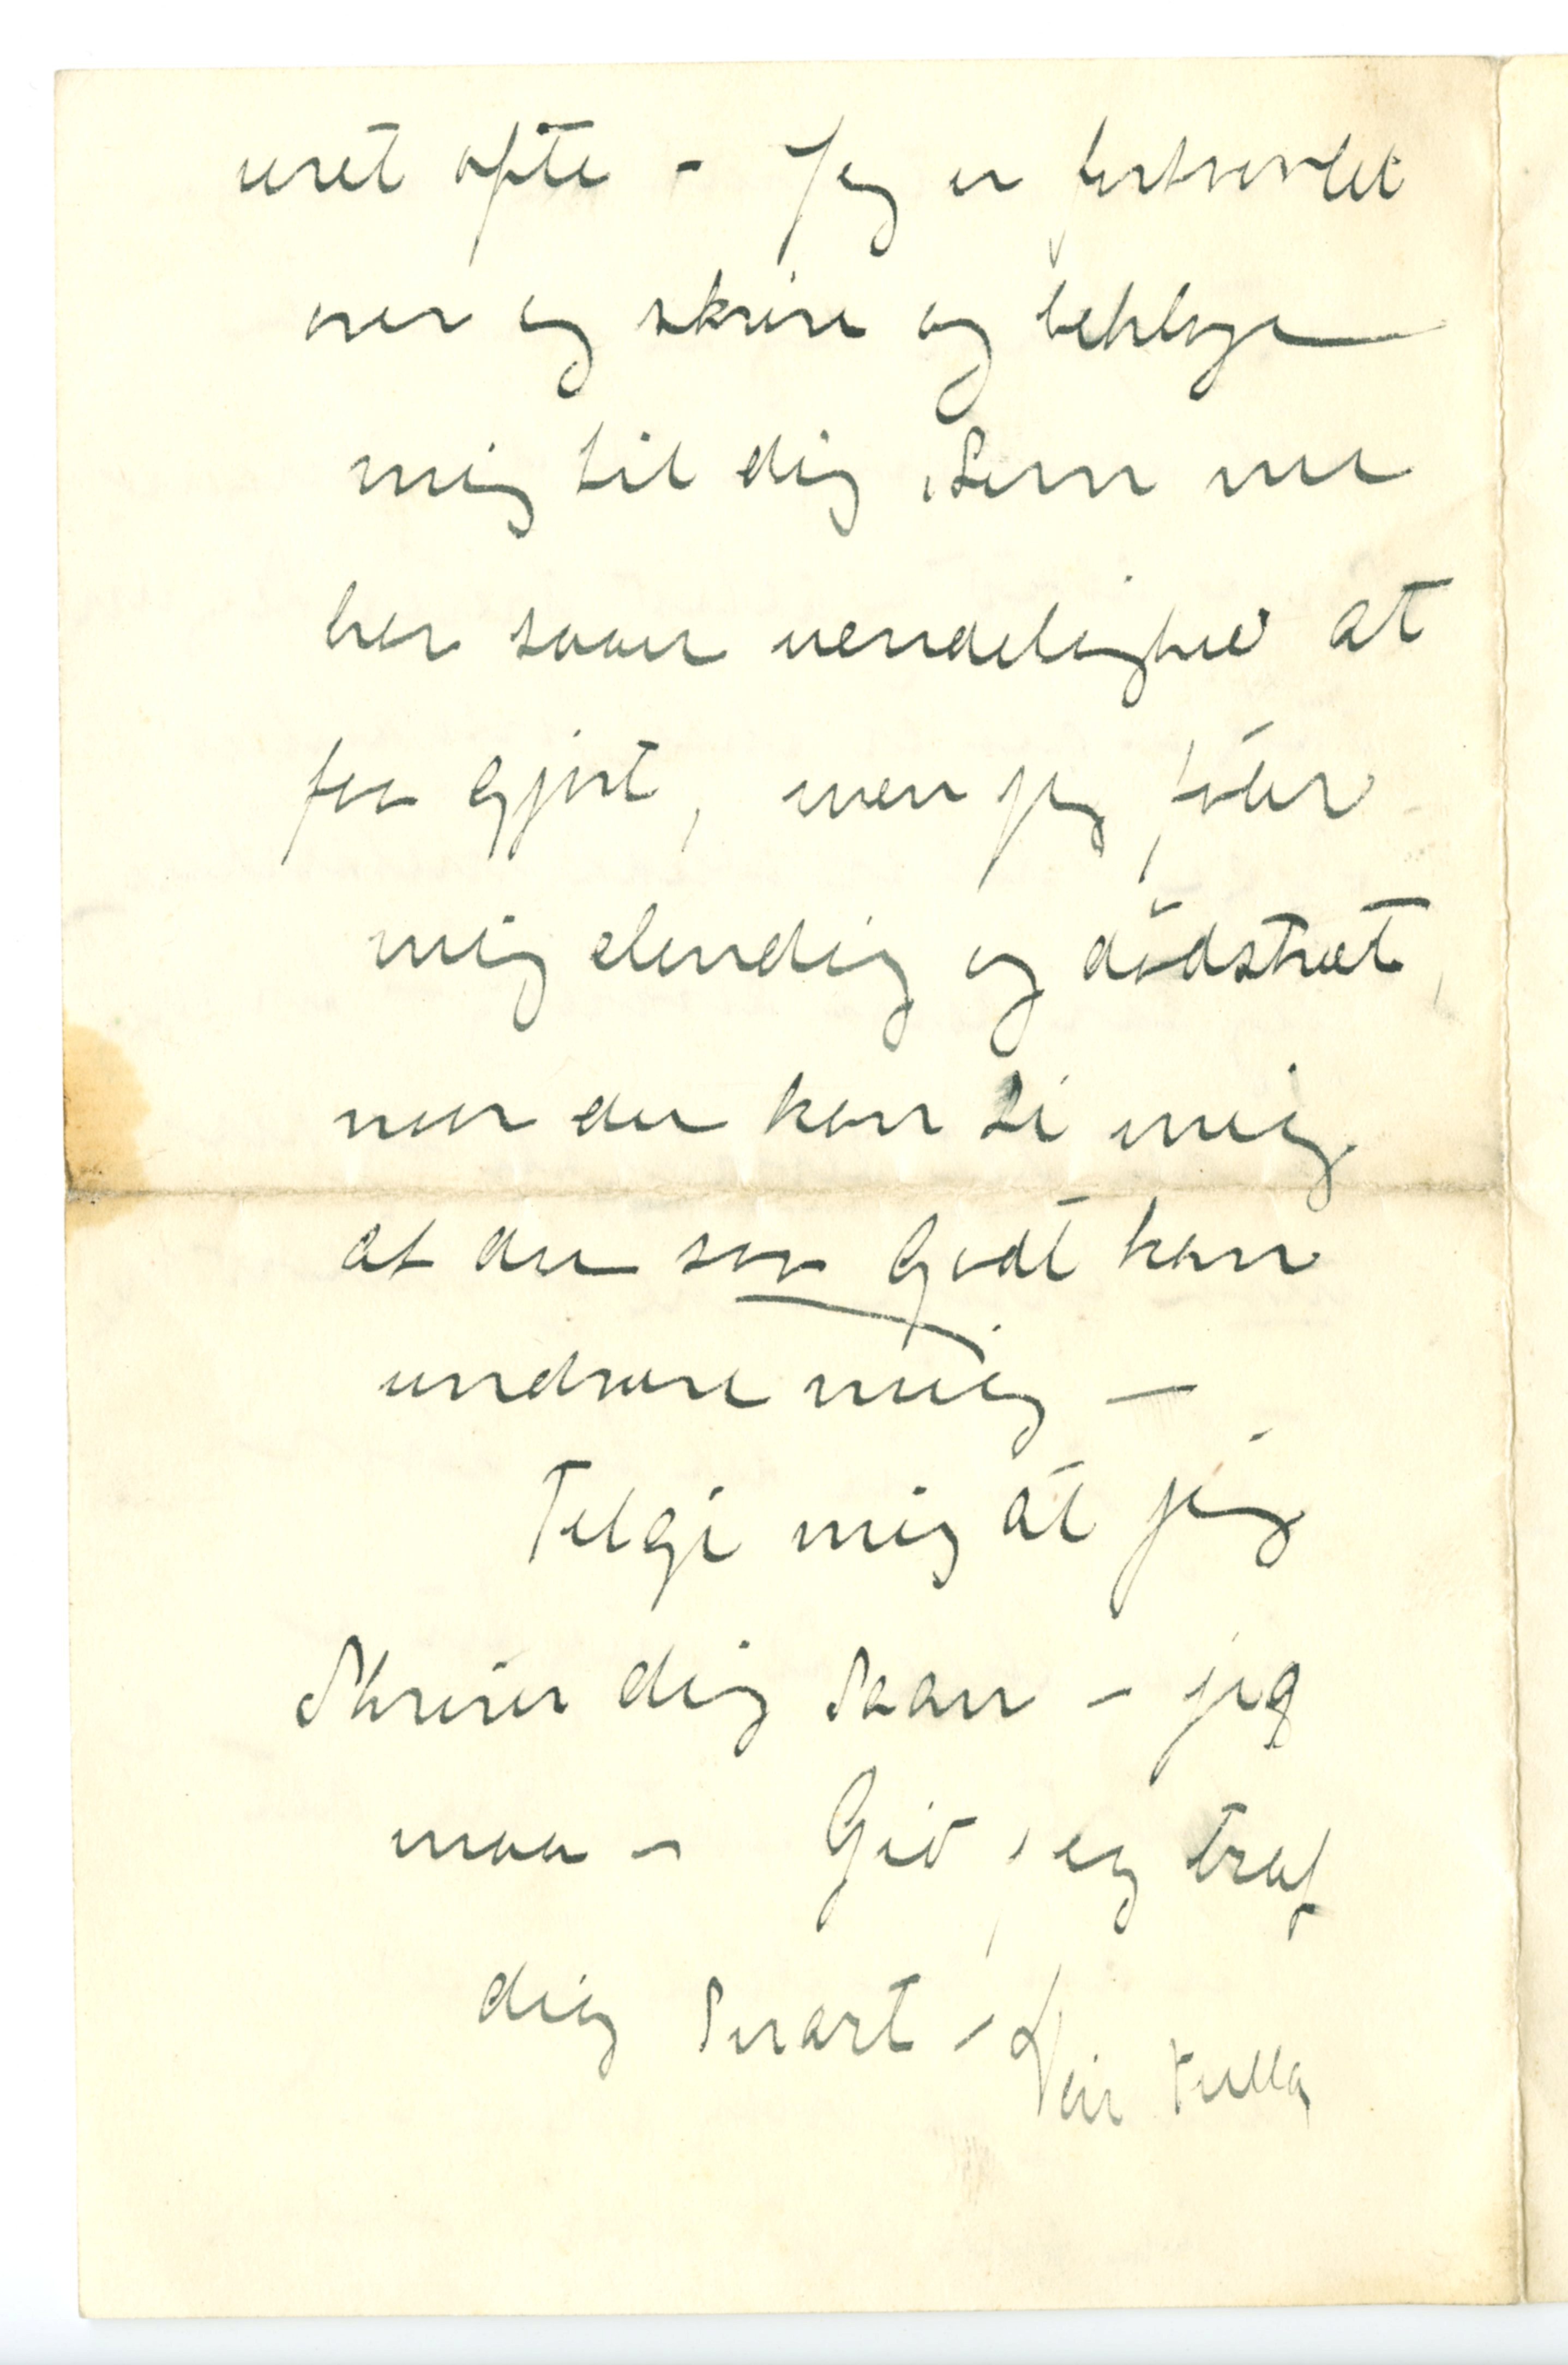 uret ofte – Jeg er fortvivlet
over og skrive og beklage
mig til dig, som nu
har saan uendelighed at
faa gjort, men jeg føler
mig elendig og dødstræt,
naar du kan si mig
at du saa godt kan
undvære mig –
Tilgi mig at jeg
skriver dig saan – jeg
maa – Gid jeg traf
dig snart – Din Tulla